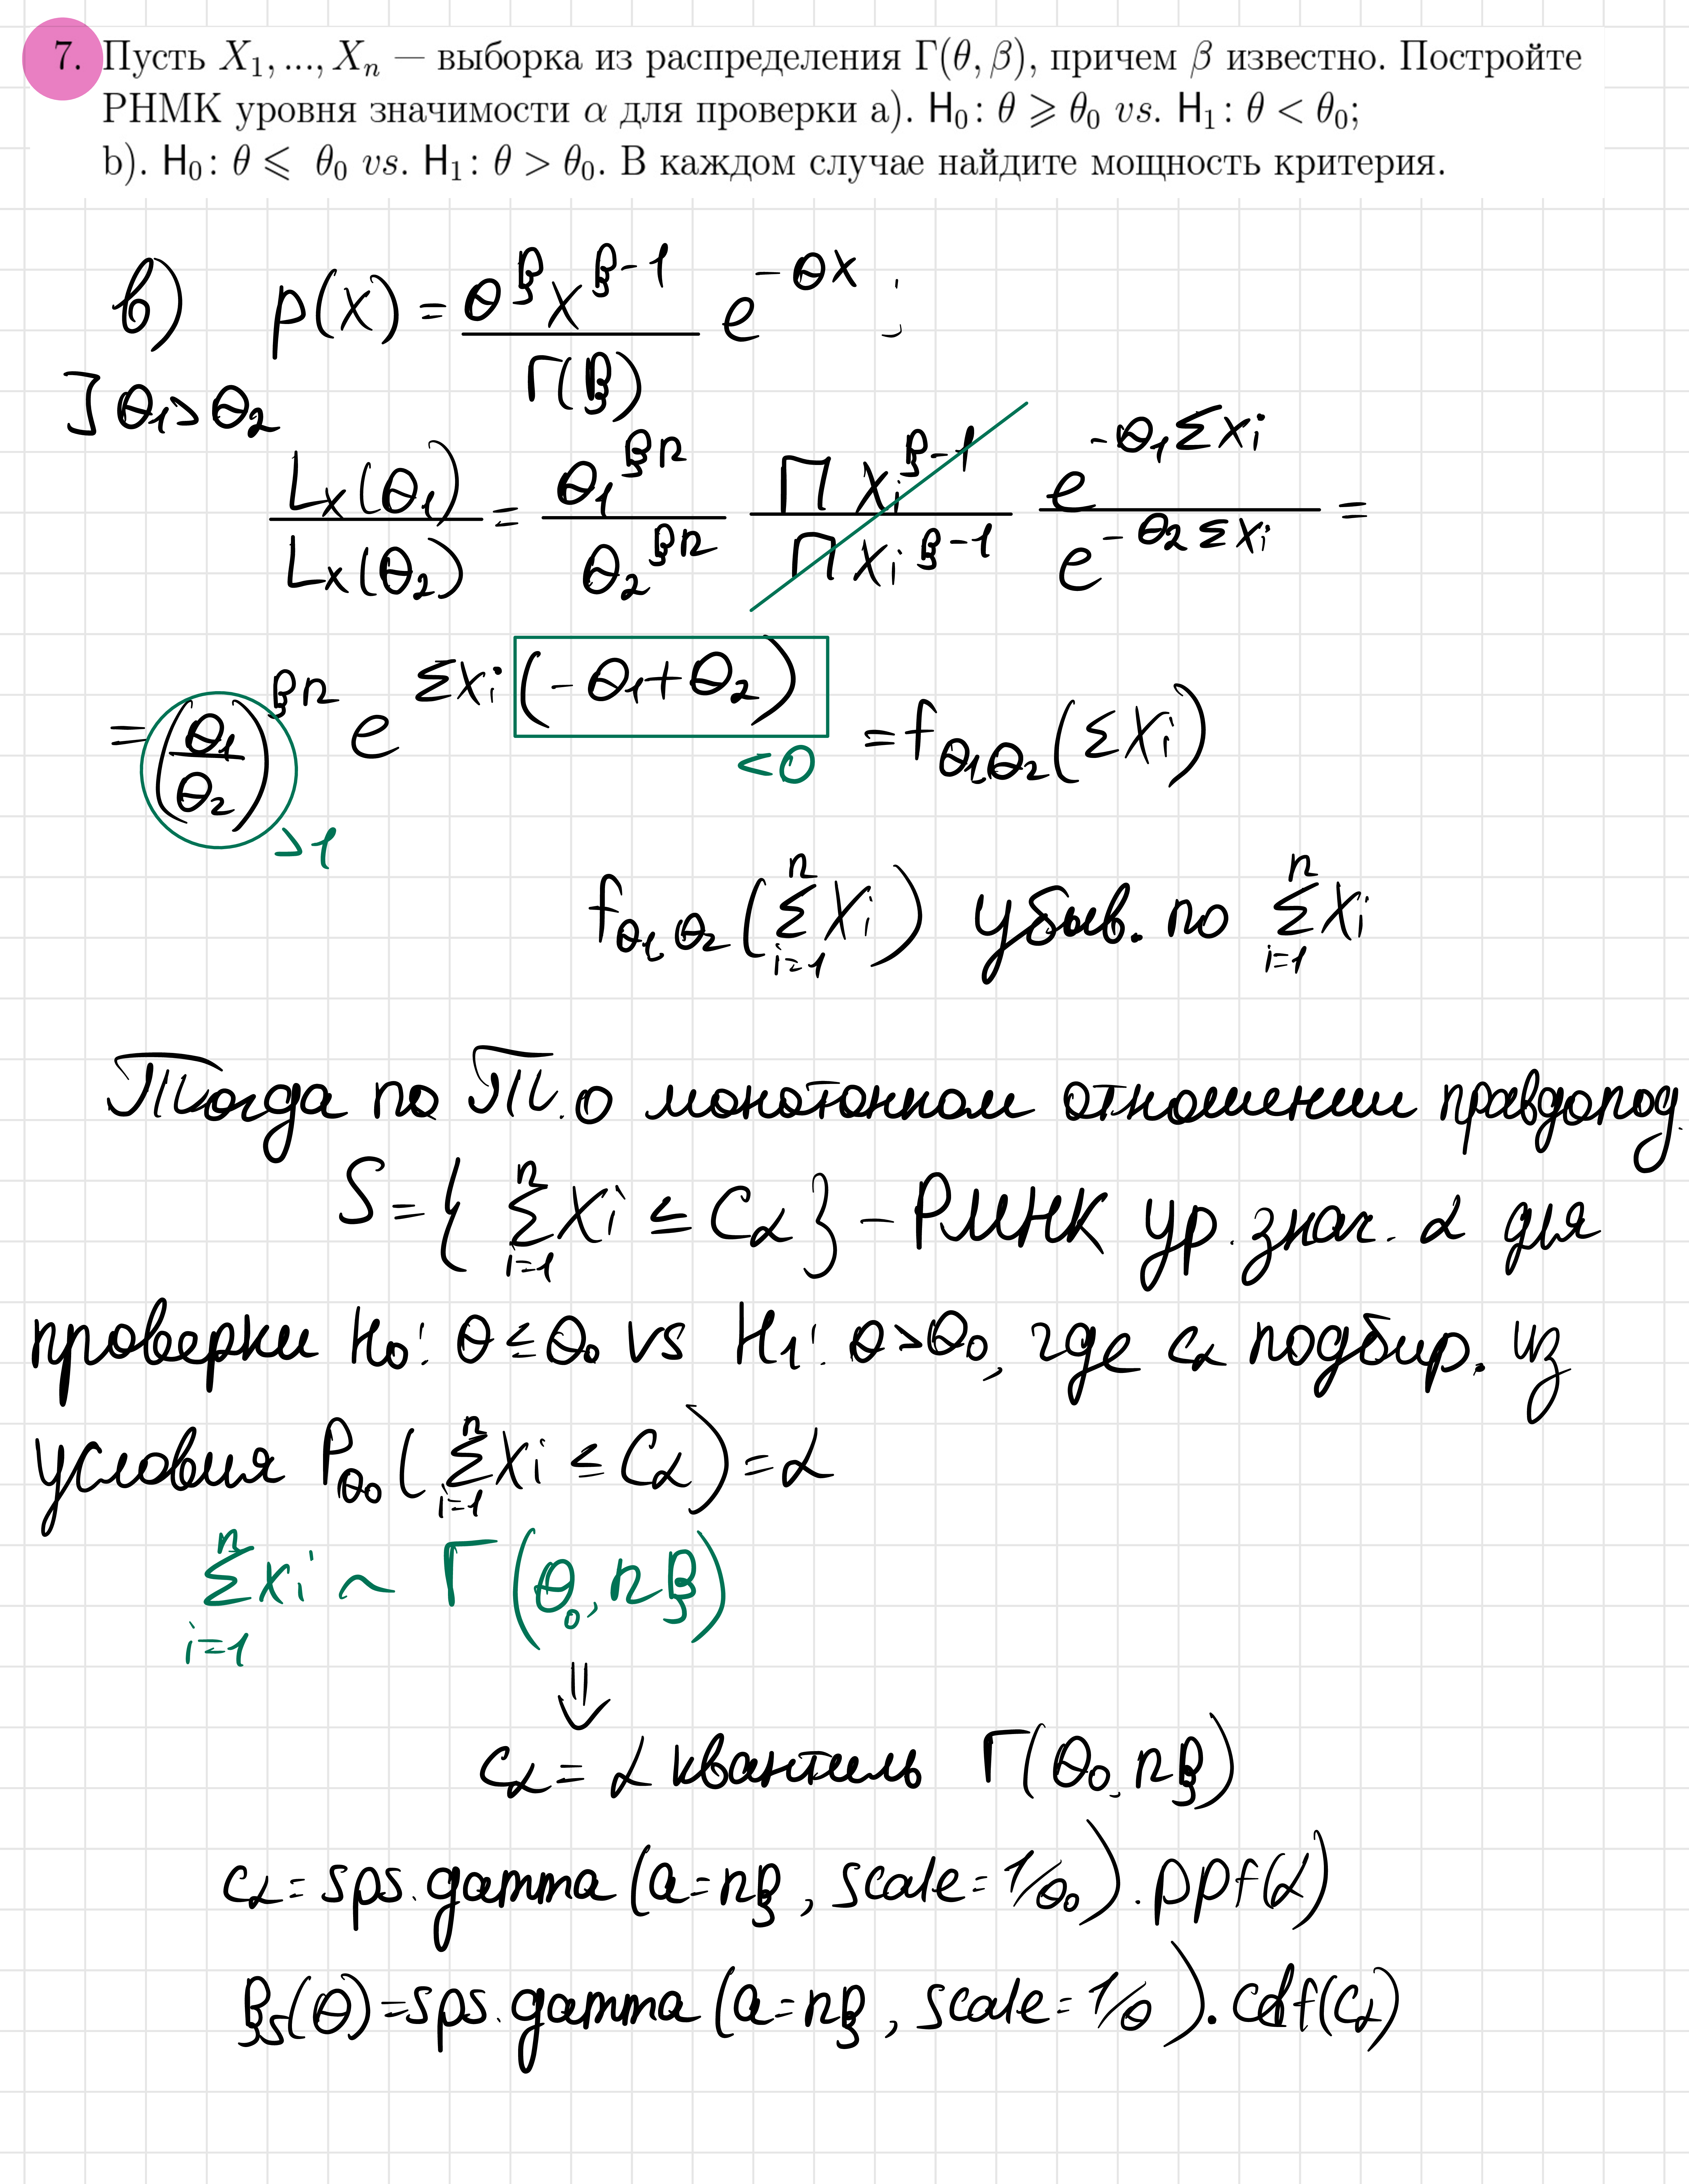 7. Пусть X₁, ..., Xₙ — выборка из распределения Γ(θ, β), причем β известно. Постройте
РНМК уровня значимости α для проверки a). H₀: θ ⩾ θ₀ vs. H₁: θ < θ₀;
b). H₀: θ ⩽ θ₀ vs. H₁: θ > θ₀. В каждом случае найдите мощность критерия.
b) p(x) = θ^β x^(β-1) / Γ(β) e^(-θx) ;
] θ₁ > θ₂
Lx(θ₁) / Lx(θ₂) = θ₁^(βn) / θ₂^(βn) ∏ xᵢ^(β-1) / ∏ xᵢ^(β-1) e^(-θ₁Σxᵢ) / e^(-θ₂Σxᵢ) =
= (θ₁ / θ₂)^(βn) e^(Σxᵢ(-θ₁+θ₂)) = f_θ₁θ₂(ΣXᵢ)
<0
>1
f_θ₁,θ₂(Σ_(i=1)^n Xᵢ) убыв. по Σ_(i=1)^n Xᵢ
Тогда по Т. о монотонном отношении правдопод.
S = { Σ_(i=1)^n Xᵢ ≤ C_α } – РМНК ур. знач. α для
проверки H₀: θ ≤ θ₀ vs H₁: θ > θ₀, где c_α подбир. из
условия P_θ₀(Σ_(i=1)^n Xᵢ ≤ C_α) = α
Σ_(i=1)^n xᵢ ~ Γ(θ₀, nβ)
⇓
c_α = α квантиль Γ(θ₀, nβ)
c_α = sps.gamma(a=nβ, scale=1/θ₀).ppf(α)
β_s(θ) = sps.gamma(a=nβ, scale=1/θ).cdf(c_α)